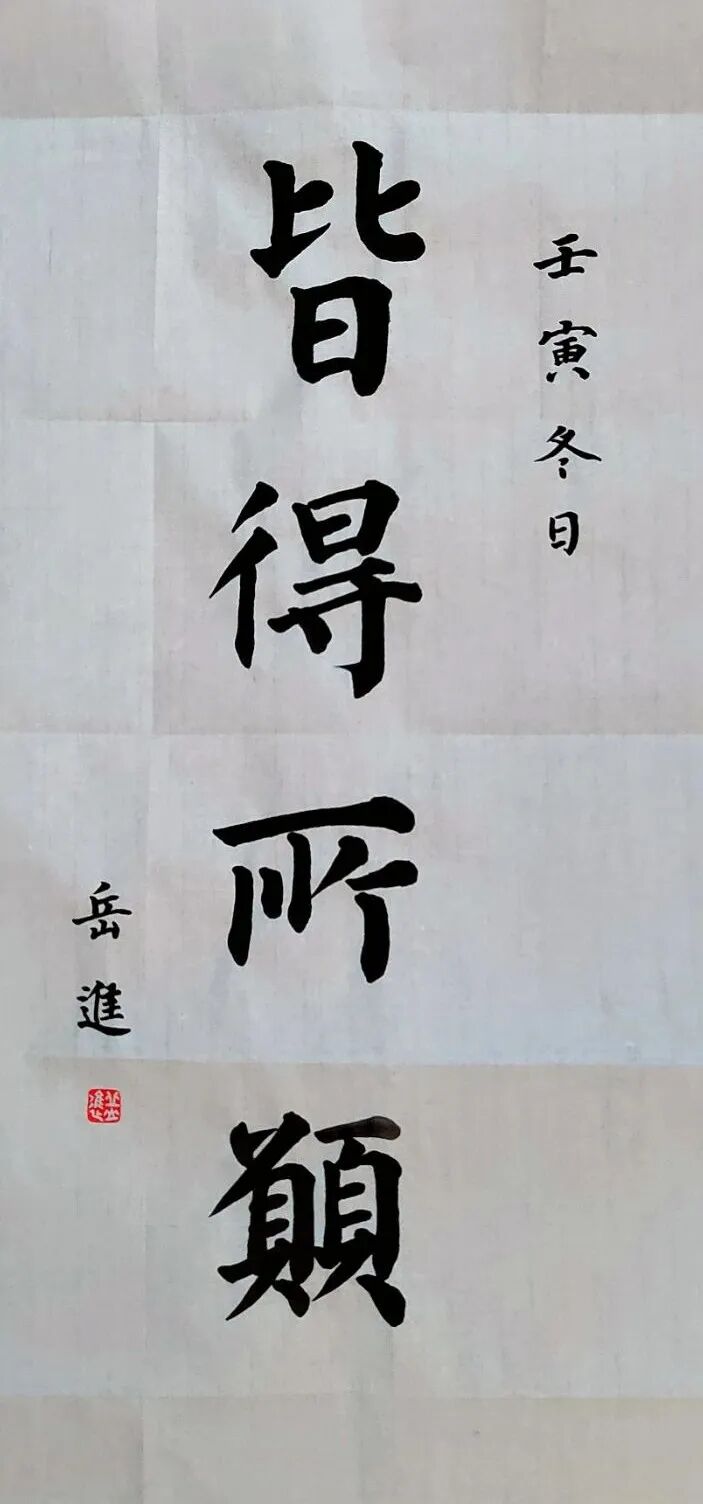 壬寅冬日
皆得所願
岳進